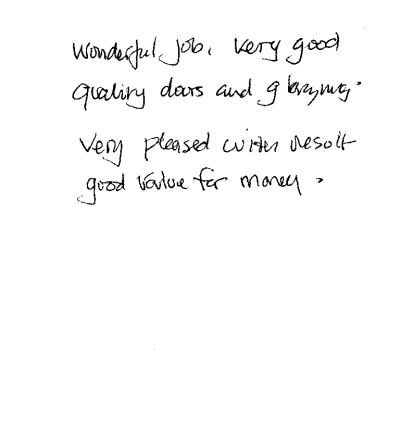 Wonderful job, very good
quality doors and glazing.
Very pleased with result
good value for money.